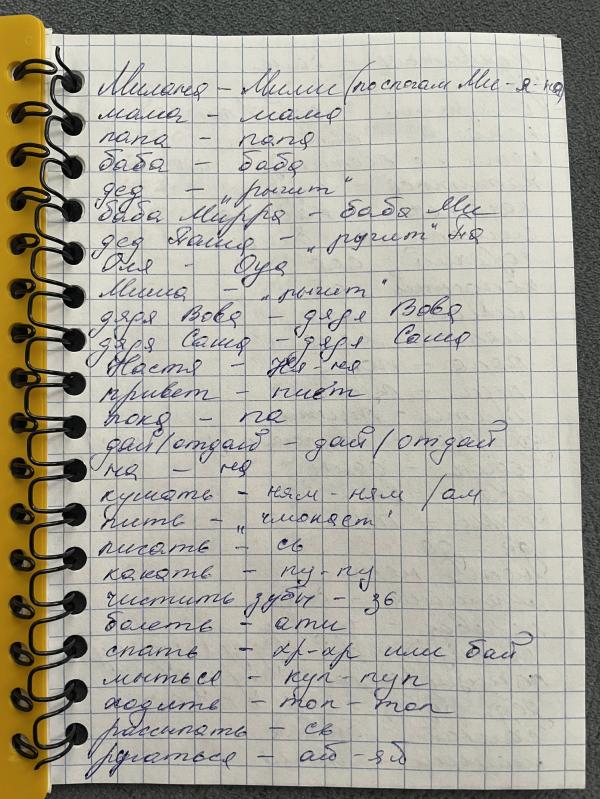 Милана - Мими (по слогам Ми-я-на)
мама - мама
папа - папа
баба - баба
дед - „рычит"
баба Мирра - баба Ми
дед Паша - „рычит" Па
Оля - Оуа
Миша - „рычит"
дядя Вова - дядя Вова
дядя Саша - дядя Саша
Настя - Ня-ня
привет - пиёт
пока - па
дай/отдай - дай/отдай
на - на
кушать - ням-ням /ам
пить - „чмокает"
писать - сь
какать - пу-пу
чистить зубы - зь
болеть - ати
спать - хр-хр или бай
мыться - куп-пуп
ходить - топ-топ
рассыпать - св
ругаться - аб-яб